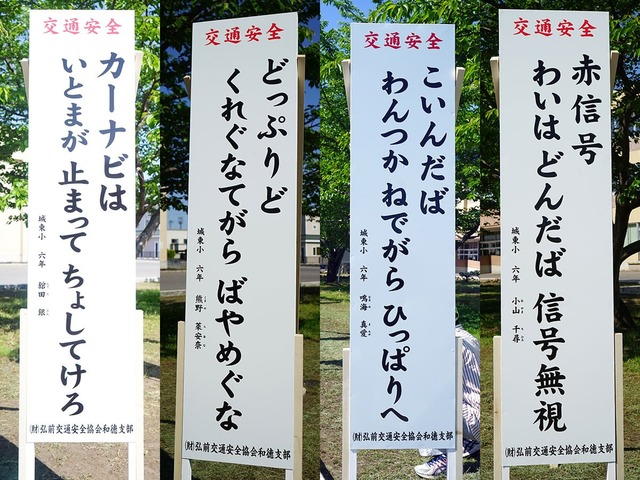 交通安全
カーナビは
いとまが 止まって ちょしてけろ
城東小 六年 舘田 銀
(財)弘前交通安全協会和德支部
交通安全
どっぷりど
くれぐなてがら ばやめぐな
城東小 六年 熊野 茉安奈
(財)弘前交通安全協会和德支部
交通安全
こいんだば
わんつか ねでがら ひっぱりへ
城東小 六年 鳴海 真愛
(財)弘前交通安全協会和德支部
交通安全
赤信号
わいは どんだば 信号無視
城東小 六年 小山 千尋
(財)弘前交通安全協会和德支部